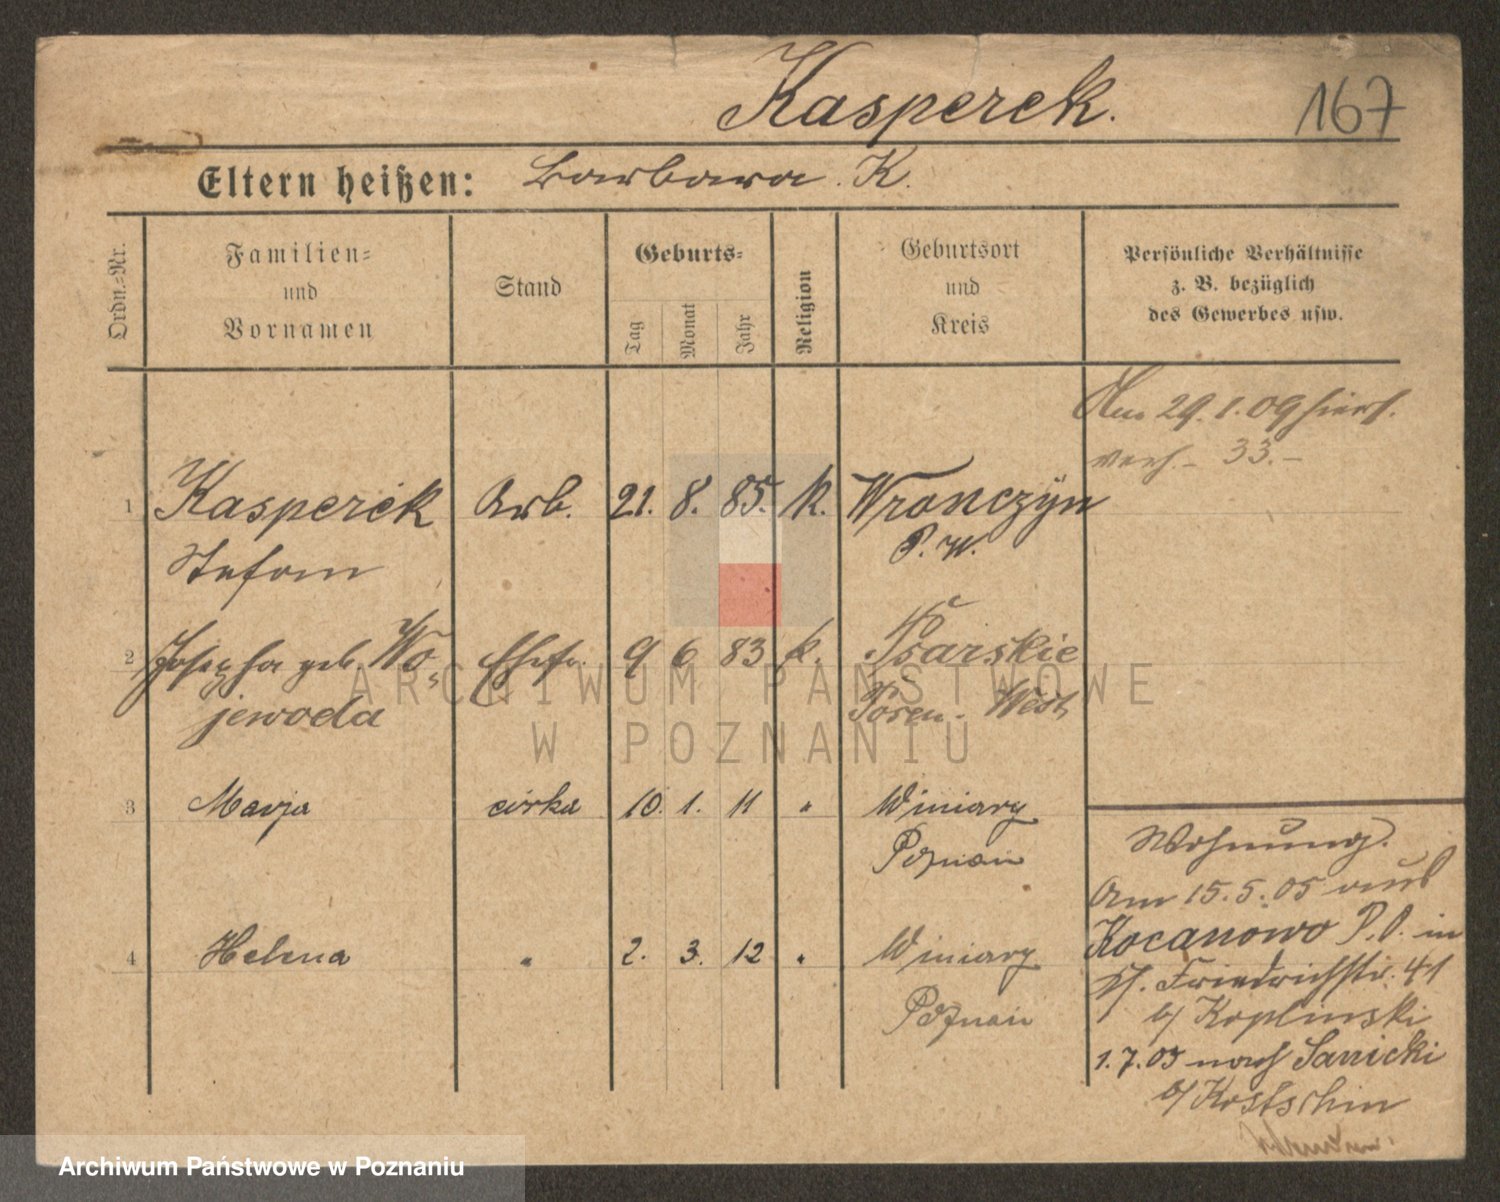 Kasperek.
167
Eltern heißen: Barbara K.
Ordn.=Nr.
Familien=
und
Vornamen
Stand
Geburts=
Tag
Monat
Jahr
Religion
Geburtsort
und
Kreis
Persönliche Verhältnisse
z. B. bezüglich
des Gewerbes usw.
Am 29.1.09 hiers.
verh. - 33. -
1 Kasperek Arb. 21. 8. 85. k. Wronczyn
Stefan P. W.
2 Josepha geb. Wo- Ehefr. 9 6 83 k. Psarskie
jewoda Posen. West
3 Marja córka 10. 1. 11 " Winiary
Poznań
4 Helena " 2. 3. 12 " Winiary
Poznań
Wohnung.
Am 15.5.05 aus
Kocanowo P.O. in
Friedrichstr. 41
b/ Koplinski
1.7.05 nach Sanicki
b/ Kostschin
ARCHIWUM PAŃSTWOWE
W POZNANIU
Archiwum Państwowe w Poznaniu